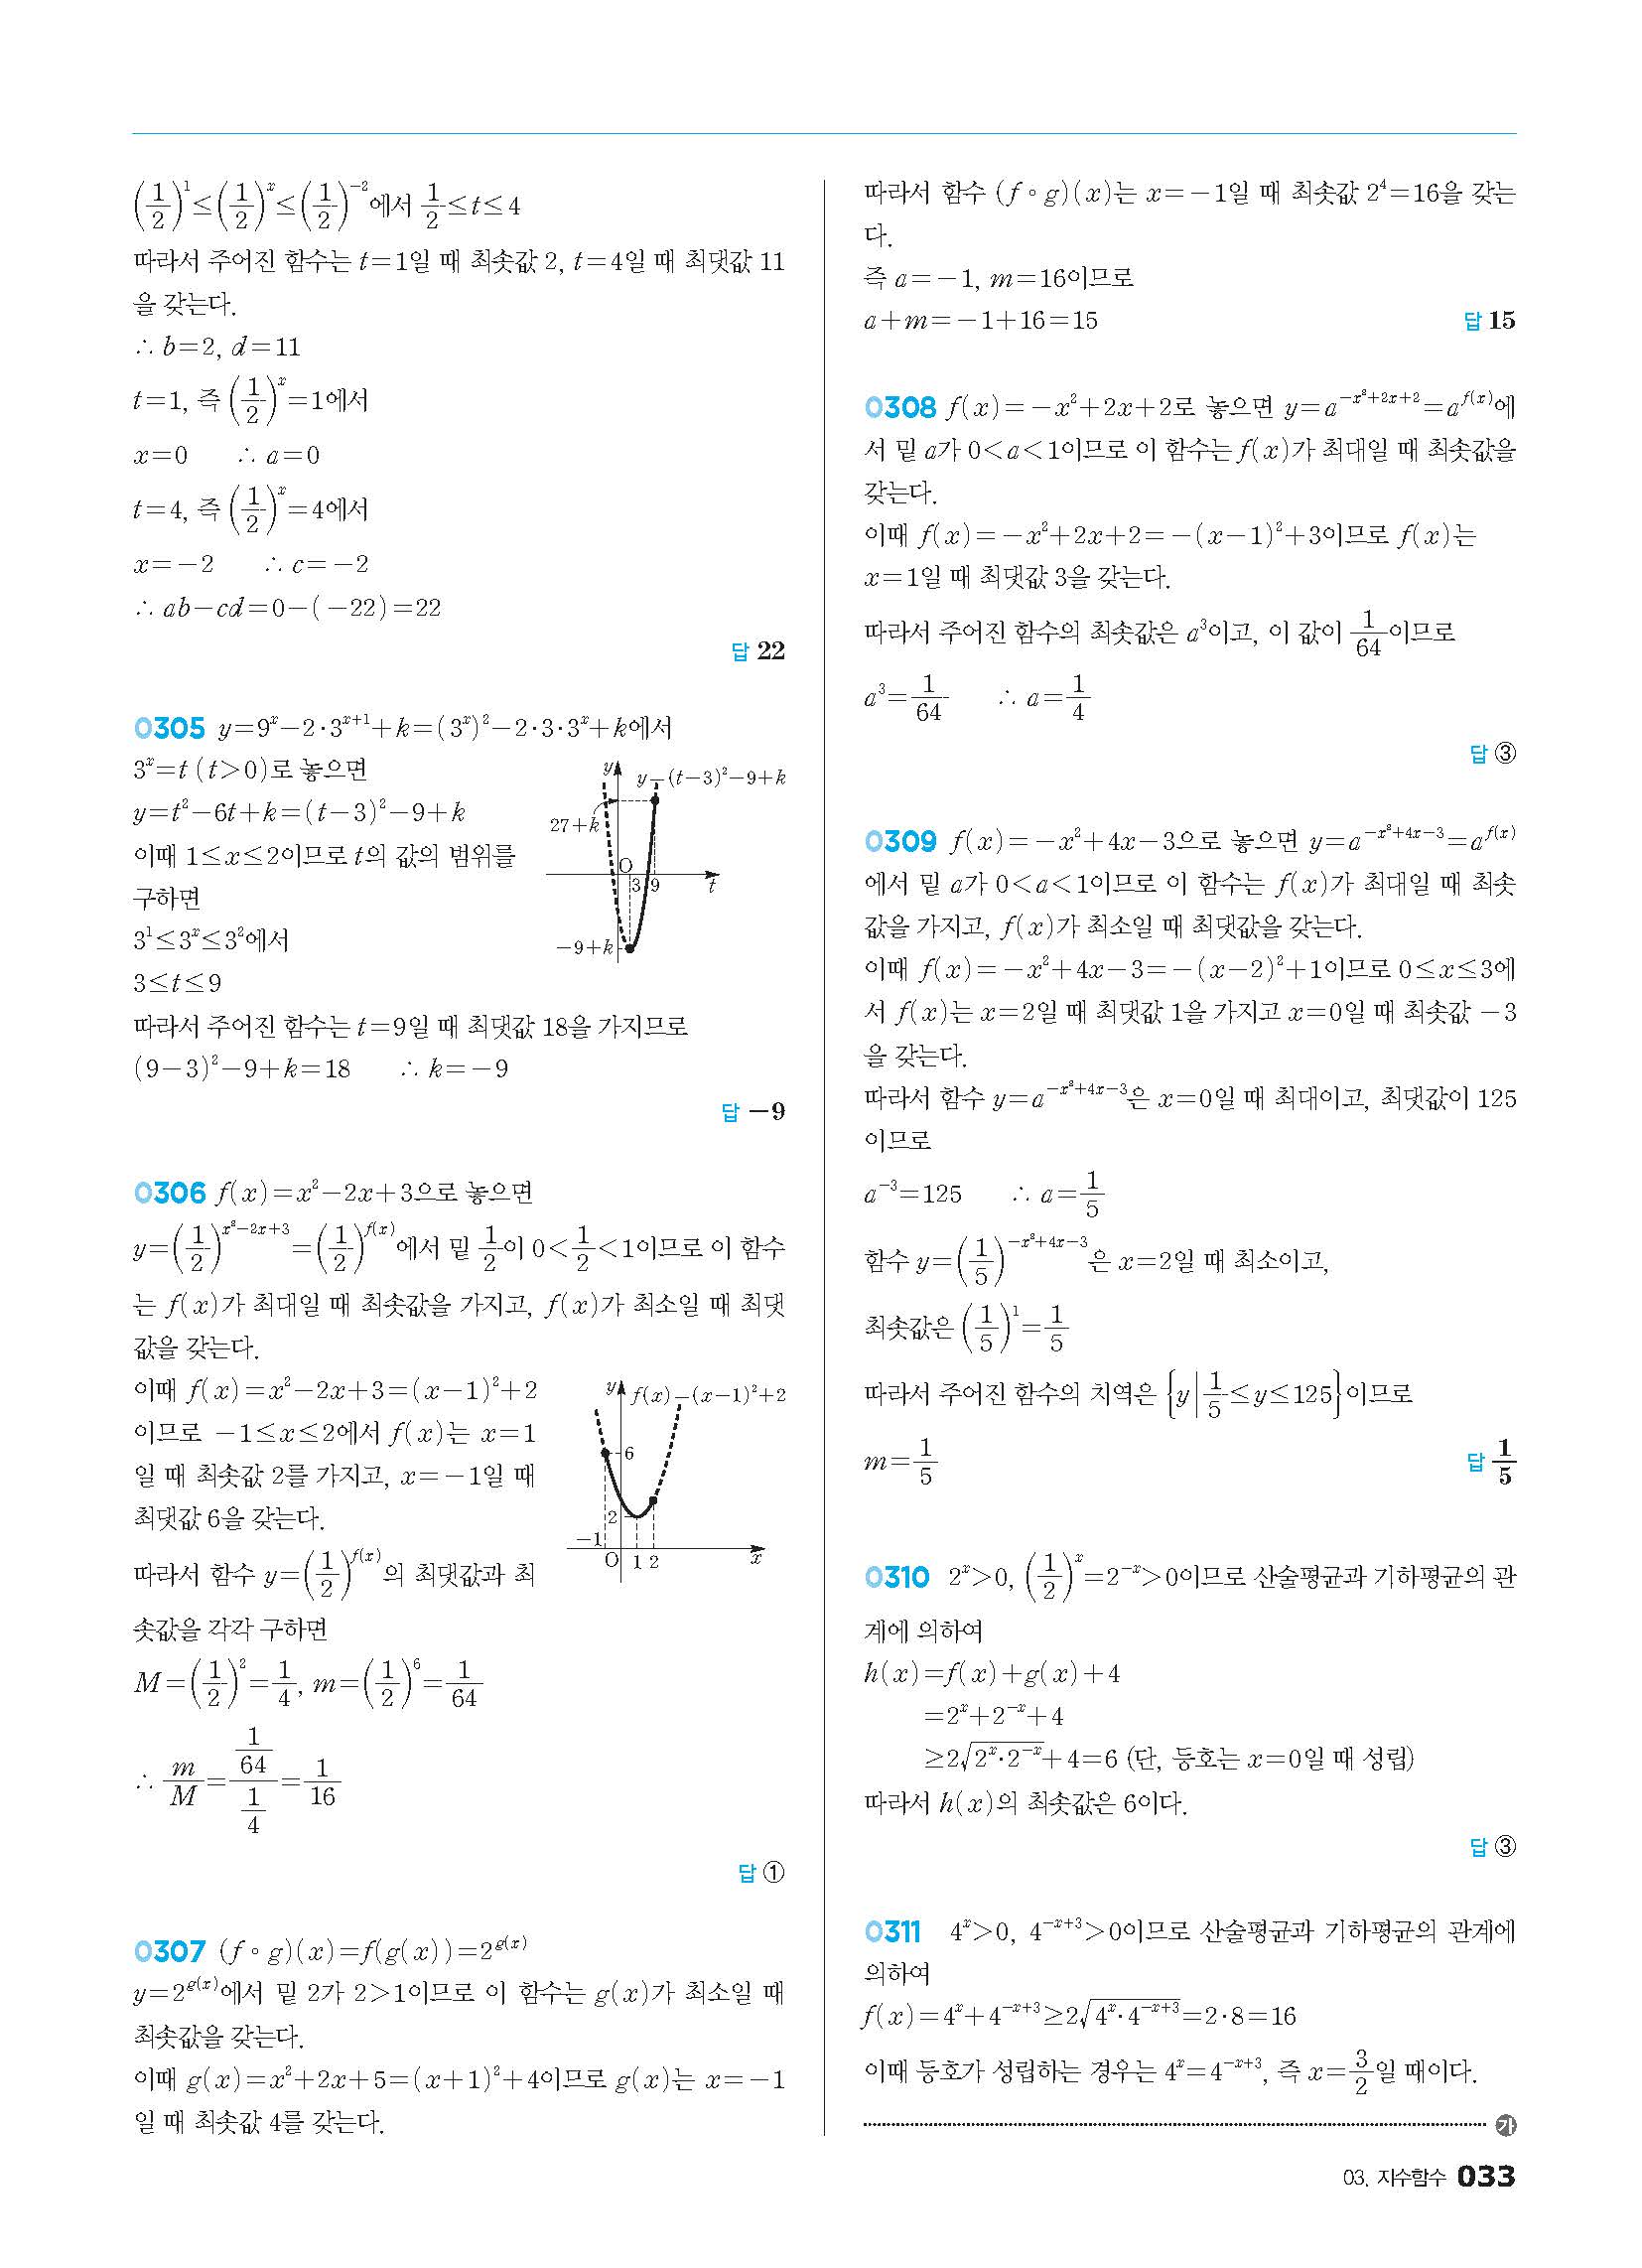 (1/2)^1≤(1/2)^x≤(1/2)^-2에서 1/2≤t≤4
따라서 주어진 함수는 t=1일 때 최솟값 2, t=4일 때 최댓값 11
을 갖는다.
∴ b=2, d=11
t=1, 즉 (1/2)^x=1에서
x=0  ∴ a=0
t=4, 즉 (1/2)^x=4에서
x=-2  ∴ c=-2
∴ ab-cd=0-(-22)=22
답 22
0305 y=9^x-2·3^(x+1)+k=(3^x)^2-2·3·3^x+k에서
3^x=t (t>0)로 놓으면
y=t^2-6t+k=(t-3)^2-9+k
이때 1≤x≤2이므로 t의 값의 범위를
구하면
3^1≤3^x≤3^2에서
3≤t≤9
y
y=(t-3)^2-9+k
27+k
O
3 9 t
-9+k
따라서 주어진 함수는 t=9일 때 최댓값 18을 가지므로
(9-3)^2-9+k=18  ∴ k=-9
답 -9
0306 f(x)=x^2-2x+3으로 놓으면
y=(1/2)^(x^2-2x+3)=(1/2)^f(x)에서 밑 1/2이 0<1/2<1이므로 이 함수
는 f(x)가 최대일 때 최솟값을 가지고, f(x)가 최소일 때 최댓
값을 갖는다.
이때 f(x)=x^2-2x+3=(x-1)^2+2
이므로 -1≤x≤2에서 f(x)는 x=1
일 때 최솟값 2를 가지고, x=-1일 때
최댓값 6을 갖는다.
따라서 함수 y=(1/2)^f(x)의 최댓값과 최
솟값을 각각 구하면
y f(x)=(x-1)^2+2
6
2
-1
O 1 2 x
M=(1/2)^2=1/4, m=(1/2)^6=1/64
∴ m/M=(1/64)/(1/4)=1/16
답 ①
0307 (f∘g)(x)=f(g(x))=2^g(x)
y=2^g(x)에서 밑 2가 2>1이므로 이 함수는 g(x)가 최소일 때
최솟값을 갖는다.
이때 g(x)=x^2+2x+5=(x+1)^2+4이므로 g(x)는 x=-1
일 때 최솟값 4를 갖는다.
따라서 함수 (f∘g)(x)는 x=-1일 때 최솟값 2^4=16을 갖는
다.
즉 a=-1, m=16이므로
a+m=-1+16=15 답 15
0308 f(x)=-x^2+2x+2로 놓으면 y=a^(-x^2+2x+2)=a^f(x)에
서 밑 a가 0<a<1이므로 이 함수는 f(x)가 최대일 때 최솟값을
갖는다.
이때 f(x)=-x^2+2x+2=-(x-1)^2+3이므로 f(x)는
x=1일 때 최댓값 3을 갖는다.
따라서 주어진 함수의 최솟값은 a^3이고, 이 값이 1/64이므로
a^3=1/64  ∴ a=1/4
답 ③
0309 f(x)=-x^2+4x-3으로 놓으면 y=a^(-x^2+4x-3)=a^f(x)
에서 밑 a가 0<a<1이므로 이 함수는 f(x)가 최대일 때 최솟
값을 가지고, f(x)가 최소일 때 최댓값을 갖는다.
이때 f(x)=-x^2+4x-3=-(x-2)^2+1이므로 0≤x≤3에
서 f(x)는 x=2일 때 최댓값 1을 가지고 x=0일 때 최솟값 -3
을 갖는다.
따라서 함수 y=a^(-x^2+4x-3)은 x=0일 때 최대이고, 최댓값이 125
이므로
a^-3=125  ∴ a=1/5
함수 y=(1/5)^(-x^2+4x-3)은 x=2일 때 최소이고,
최솟값은 (1/5)^1=1/5
따라서 주어진 함수의 치역은 {y|1/5≤y≤125}이므로
m=1/5 답 1/5
0310 2^x>0, (1/2)^x=2^-x>0이므로 산술평균과 기하평균의 관
계에 의하여
h(x)=f(x)+g(x)+4
=2^x+2^-x+4
≥2√(2^x·2^-x)+4=6 (단, 등호는 x=0일 때 성립)
따라서 h(x)의 최솟값은 6이다.
답 ③
0311 4^x>0, 4^(-x+3)>0이므로 산술평균과 기하평균의 관계에
의하여
f(x)=4^x+4^(-x+3)≥2√(4^x·4^(-x+3))=2·8=16
이때 등호가 성립하는 경우는 4^x=4^(-x+3), 즉 x=3/2일 때이다.
가
03. 지수함수 033